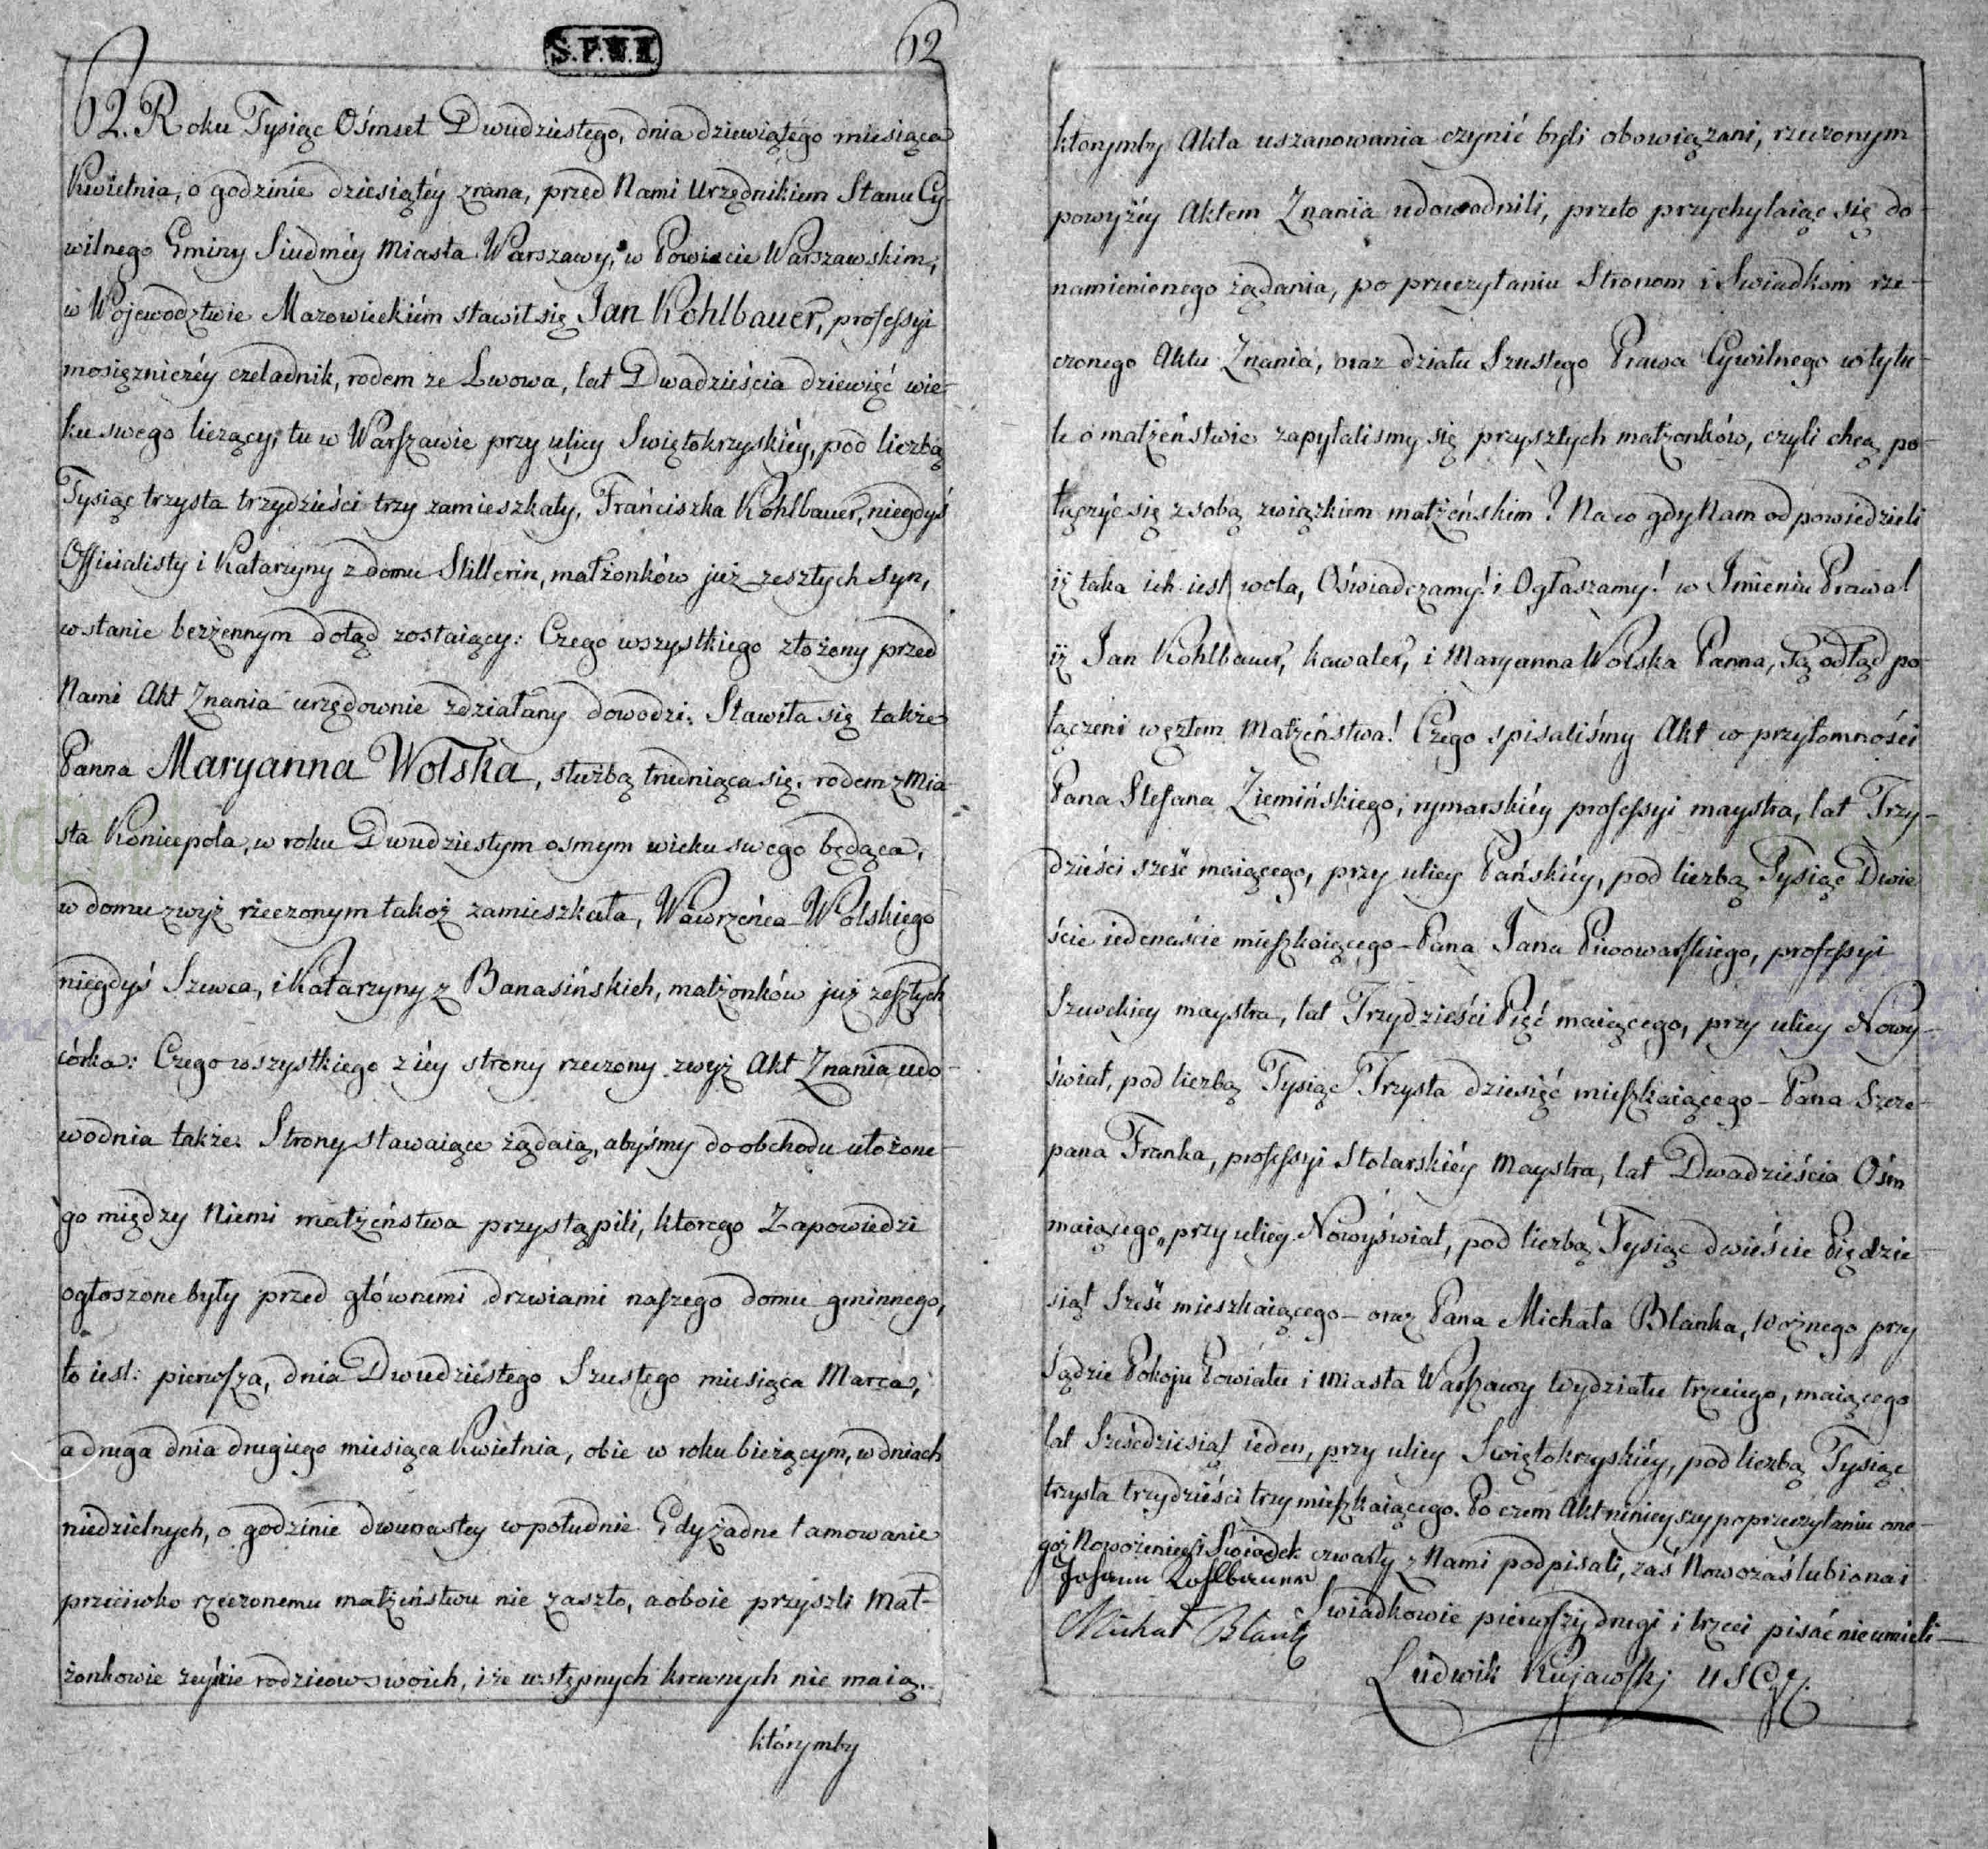 S.P.W.I.
62
62. Roku Tysiąc Ośmset Dwudziestego, dnia dziewiątego miesiąca
Kwietnia, o godzinie dziesiątéy zrana, przed Nami Urzędnikiem Stanu Cy-
wilnego Gminy Siudméy Miasta Warszawy, w Powiecie Warszawskim,
w Wojewodztwie Mazowieckiém stawił się Jan Kohlbauer, professyi
mosięzniczéy czeladnik, rodem ze Lwowa, lat Dwadzieścia dziewięć wie-
ku swego liczący, tu w Warszawie przy ulicy Swiętokrzyskiéy, pod liczbą
Tysiąc trzysta trzydzieści trzy zamieszkały, Frańciszka Kohlbauer, niegdyś
Officialisty i Katarzyny z domu Stillerin, małżonków już zeszłych syn,
w stanie bezżennym dotąd zostaiący: Czego wszystkiego złożony przed
Nami Akt Znania urzędownie zdziałany dowodzi. Stawiła się także
Panna Maryanna Wolska, służbą trudniąca się, rodem z Mia-
sta Koniecpola, w roku Dwudziestym osmym wieku swego będąca,
w domu zwyż rzeczonym takoż zamieszkała, Wawrzeńca Wolskiego
niegdyś Szewca, i Katarzyny z Banasińskich, małżonków już zeszłych
córka: Czego wszystkiego z iéy strony rzeczony zwyż Akt Znania udo-
wodnia także. Strony stawaiące żądaią, abyśmy do obchodu ułożone-
go między Niemi małżeństwa przystąpili, ktorego Zapowiedzi
ogłoszone były przed głównemi drzwiami naszego domu gminnego,
to iest: pierwsza, dnia Dwudziestego Szustego miesiąca Marca,
a druga dnia drugiego miesiąca Kwietnia, obie w roku bieżącym, w dniach
niedzielnych, o godzinie dwunastey w południe. Gdy żadne tamowanie
przeciwko rzeczonemu małżeństwu nie zaszło, a oboie przyszli Mał-
żonkowie zeyście rodzicow swoich, i że wstępnych krewnych nie maią.
którymby
ktorymby Akta uszanowania czynić byli obowiązani, rzeczonym
powyżéy Aktem Znania udowodnili, przeto przychylaiąc się do
namienionego żądania, po przeczytaniu Stronom i Swiadkom rze-
czonego Aktu Znania, oraz działu Szustego Prawa Cywilnego w tytu-
le o małżeństwie zapytaliśmy się przyszłych małżonków, czyli chcą po-
łączyć się z sobą związkiem małżeńskim? Na co gdy Nam odpowiedzieli
iż taka ich iest wola, Oświadczamy! i Ogłaszamy! w Imieniu Prawa!
iż Jan Kohlbauer, kawaler, i Maryanna Wolska Panna, Są odtąd po
łączeni węzłem Małżeństwa! Czego spisaliśmy Akt w przytomności
Pana Stefana Ziemińskiego, rymarskiéy professyi maystra, lat Trzy-
dzieści sześć maiącego, przy ulicy Pańskiéy, pod liczbą Tysiąc Dwie
ście iedenaście mieszkaiącego – Pana Jana Piwowarskiego, professyi
Szewckiey maystra, lat Trzydzieści Pięć maiącego, przy ulicy Nowy-
świat, pod liczbą Tysiąc Trzysta dziesięć mieszkaiącego – Pana Szcze-
pana Franka, professyi Stolarskiéy Maystra, lat Dwadzieścia Ośm
maiącego, przy ulicy Nowyświat, pod liczbą Tysiąc dwieście Pięćdzie-
siąt Sześć mieszkaiącego – oraz Pana Michała Blanka, Woznego przy
Sądzie Pokoju Powiatu i Miasta Warszawy Wydziału trzeciego, maiącego
lat Sześćdziesiąt ieden, przy ulicy Swiętokrzyskiéy, pod liczbą Tysiąc
trzysta trzydzieści trzy mieszkaiącego. Po czem Akt ninieyszy po przeczytaniu one-
goż Nowożeniec i Swiadek czwarty z Nami podpisali, zaś Nowozaślubiona i
Johann Kohlbauer
Swiadkowie pierwszy drugi i trzeci pisać nie umieli –
Michał Blank
Ludwik Kujawski USC